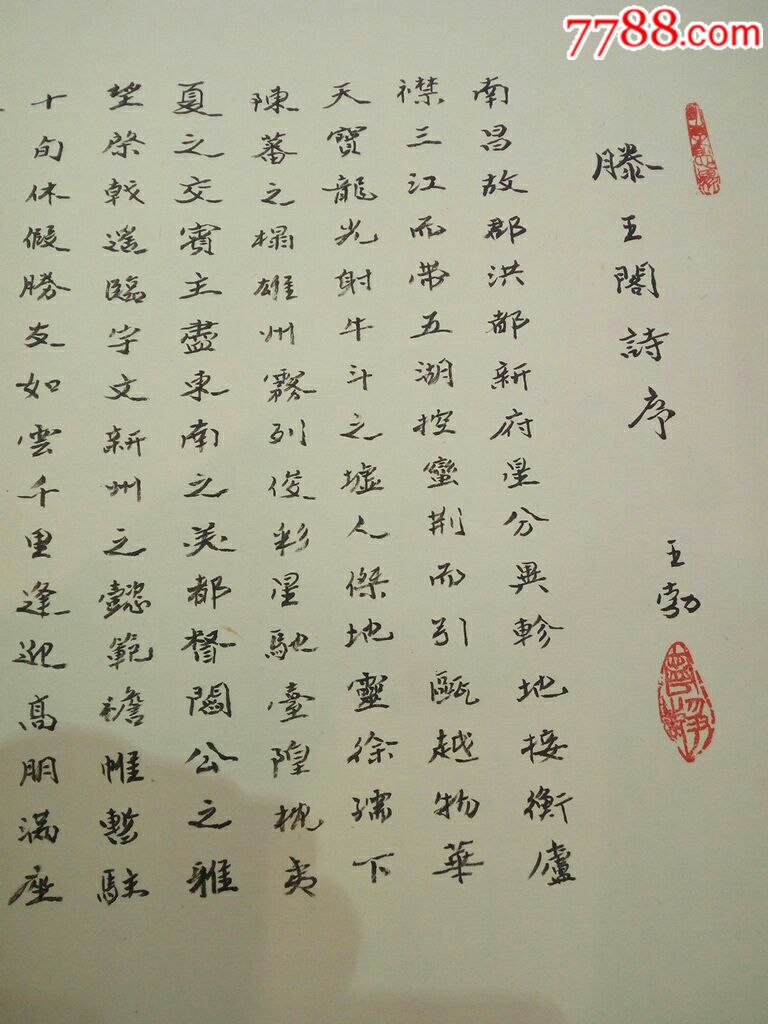 7788.com
滕王閣詩序
王勃
南昌故郡洪都新府星分異軫地接衡廬
襟三江而帶五湖控蠻荊而引甌越物華
天寶龍光射牛斗之墟人傑地靈徐孺下
陳蕃之榻雄州霧列俊彩星馳臺隍枕夷
夏之交賓主盡東南之美都督閻公之雅
望棨戟遙臨宇文新州之懿範襜帷暫駐
十旬休假勝友如雲千里逢迎高朋滿座